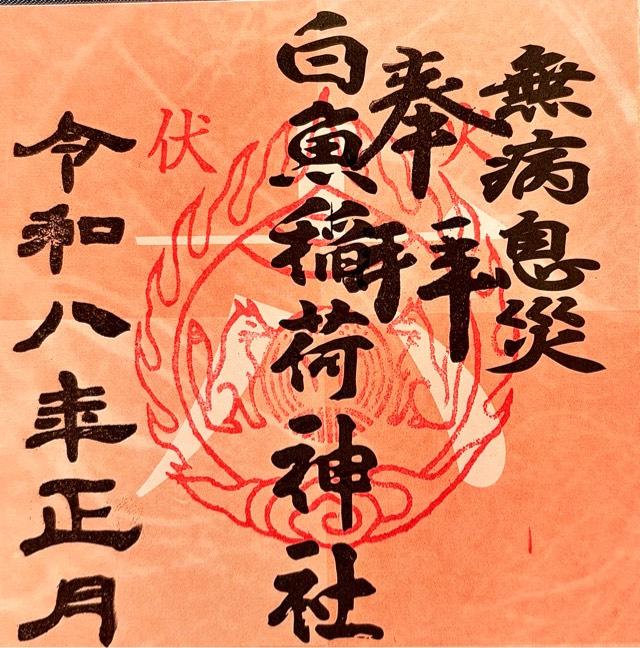 無病息災
奉拝
火伏
白魚稲荷神社
令和八年正月